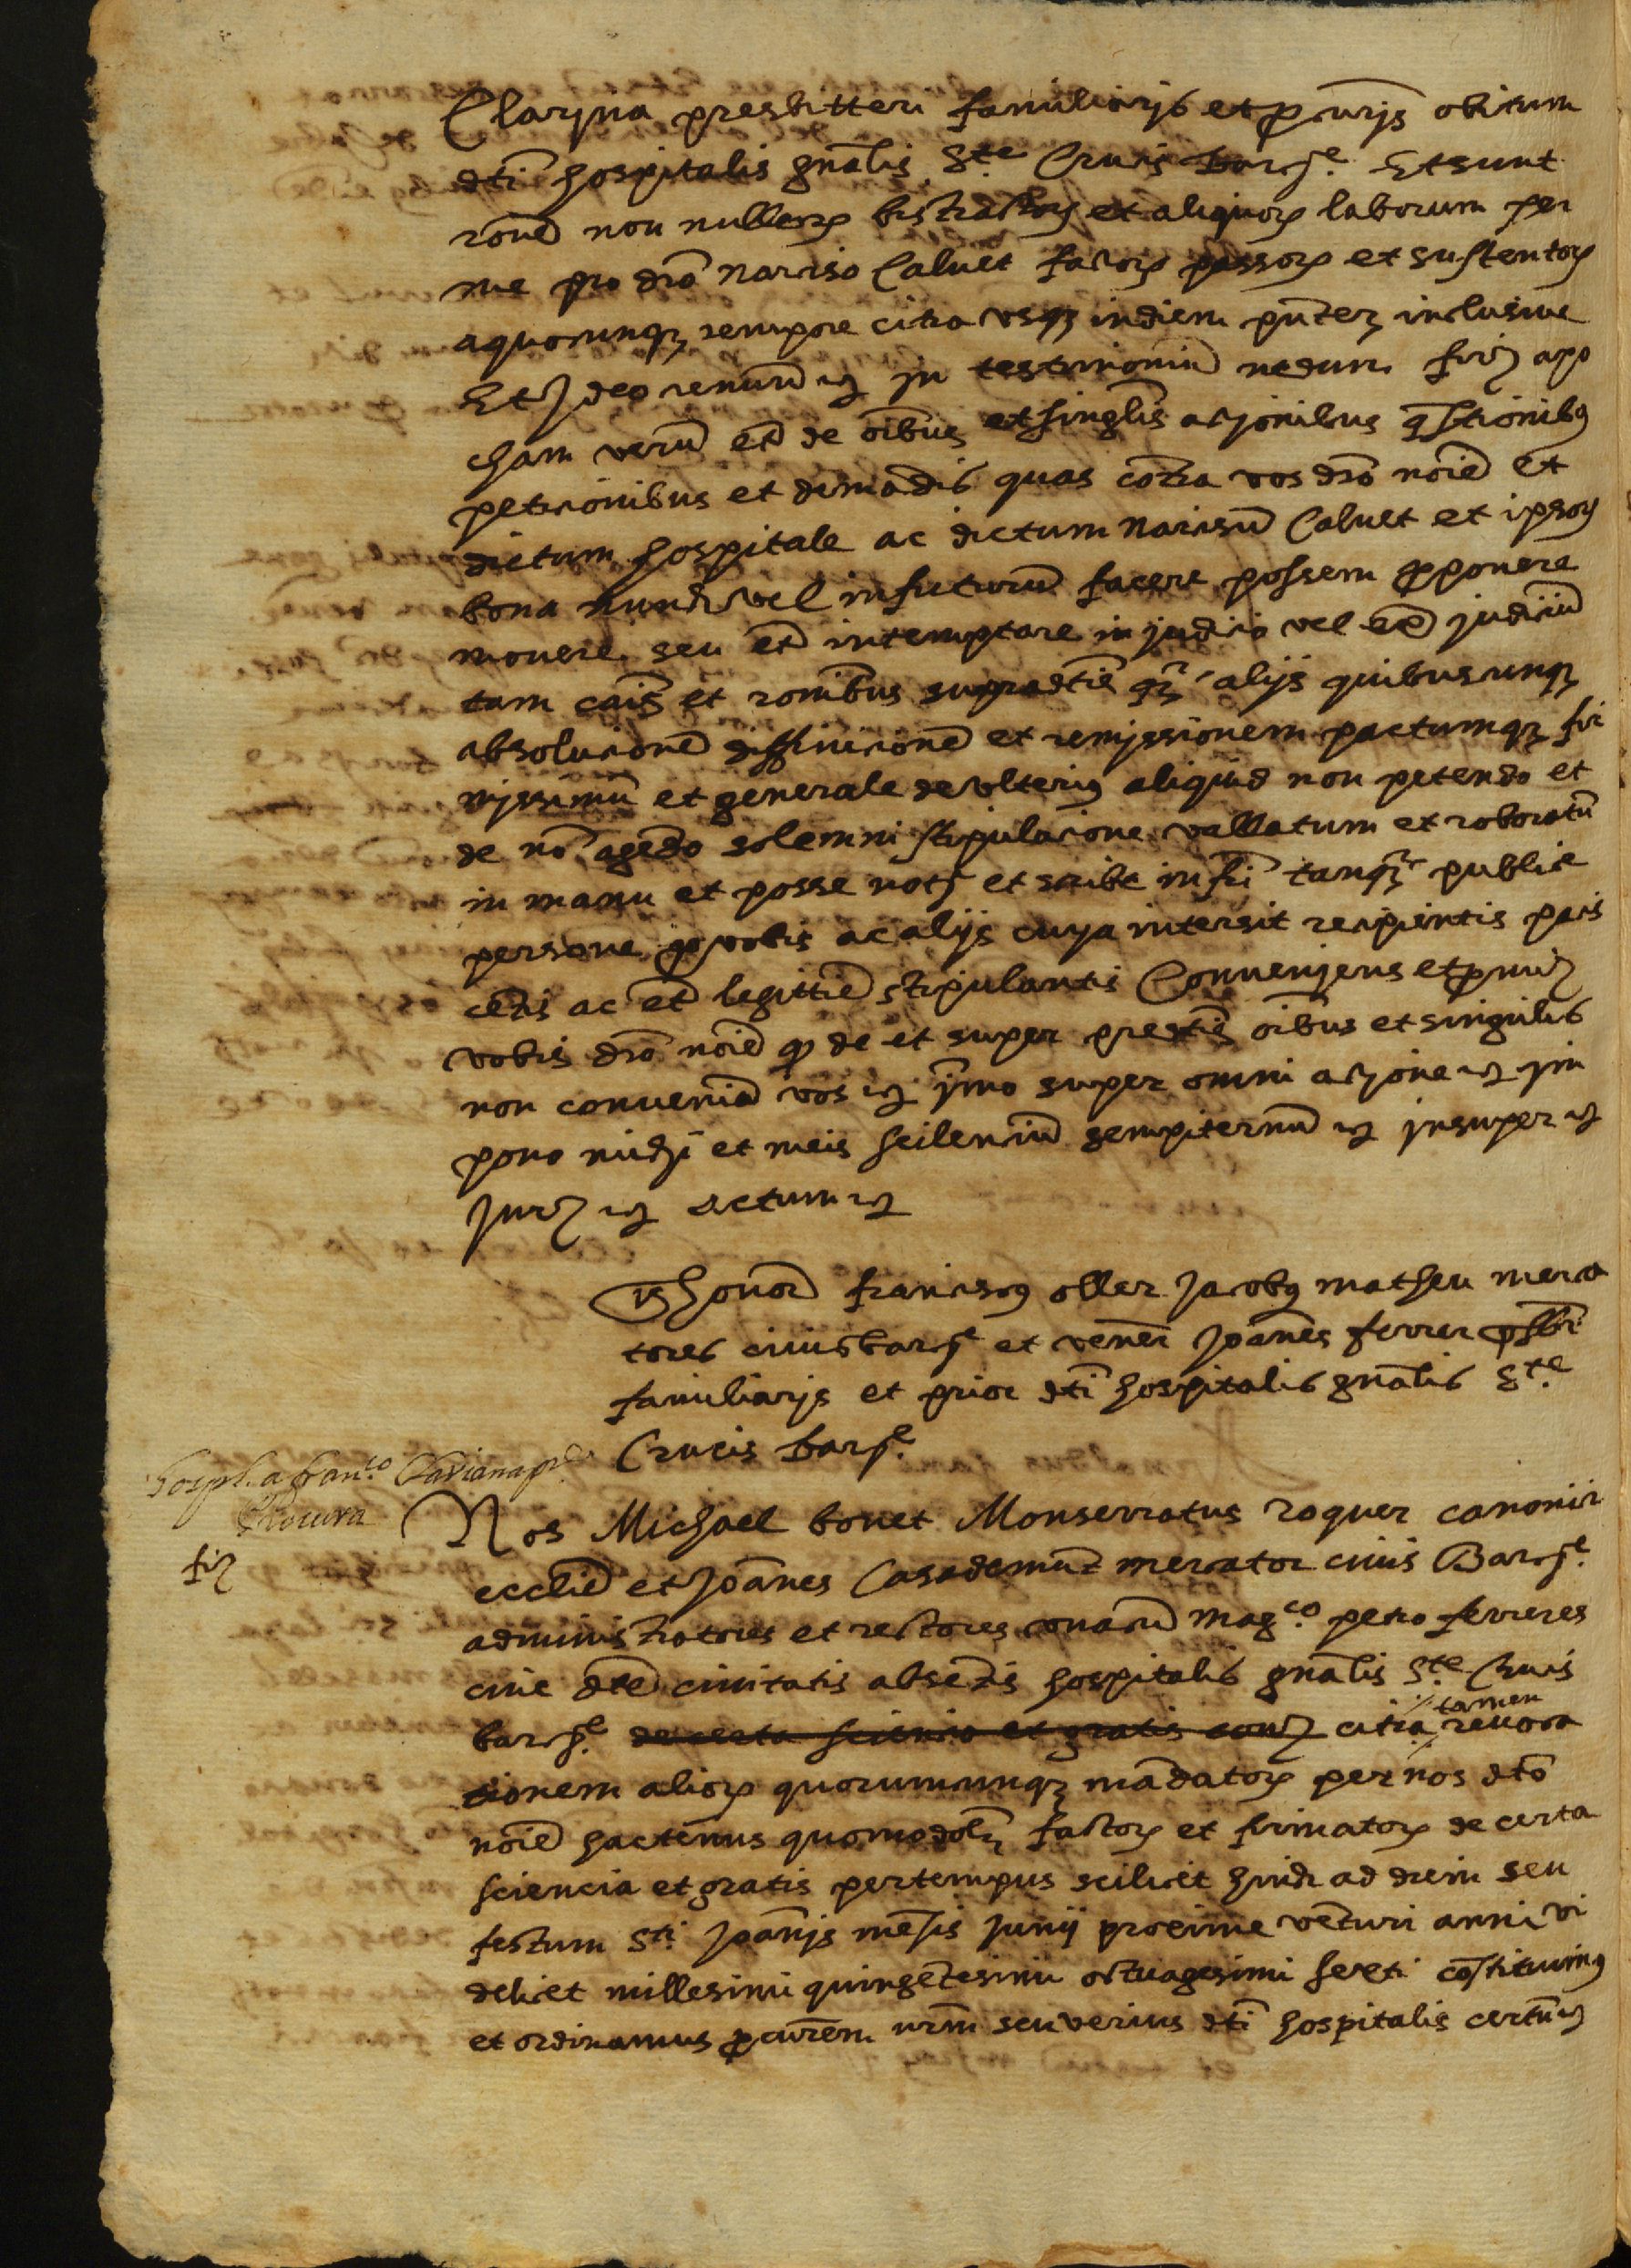 Claryna presbitteri familiarijs et p̲curijs obitum
dti hospitalis gn̄alis Ste Crucis barc̄e. Et sunt
rōne non nullorꝝ bistractorꝝ et aliquorꝝ laborum per
me pro dc̄o Narciso Calvet factorꝝ passorꝝ et sustentorꝝ
a quocumqꝫ tempore citra vsqꝫ in diem pn̄tem inclusiue
Et Ideo renun̄ ꝛꝫ in testimoniū nedum fir̄ apo
cham verū et̄ de oībus et singl̄is actjonibus q̄stionibꝰ
peticionibus et demādis quas cōtra vos dc̄o noīe et
dictum hospitale ac dictum Narcisū Calvet et ipsorꝝ
bona nunc vel in futurū facere possem p̱ponere
mouere seu et̄ intemptare in judicio vel ex̄ judiciū
tam cāis et rōnibus supradc̄is qꝫ alijs quibuscunqꝫ
absolucionē diffinicionē et remjssionem pactumqꝫ fir
mjssimū et generale de vlteriꝰ aliquid non petendo et
de nō agēdo solemni stipulacione vallatum et roboratū
in manu et posse notj et scribe infri tanqꝫ publice
persone p̱ vobis ac alijs cuya intersit recipientis pacis
cētis ac et̄ legittiē stipulantis Convenjens et p̱mitꝫ
vobis dc̄o noīe qꝫ de et super predc̄is oībus et singulis
non conveniā vos ꝛꝫ ȳmo super omni actjone ꝛꝫ jm
pono midjī et meis scilenciū sempiternū ꝛꝫ jnsuper ꝛꝫ
Jur̄ ꝛꝫ actum ꝛꝫ
Ts honor̄ franciscꝰ oller Jacobꝰ matheu merca
tores ciuis barc̄e et vener̄ Joānes ferrer p̄sbr̄
familiarjs et prior dti hospitalis gn̄alis Ste
Crucis barc̄e.
hospl. a franco Claviana pre
Procura
fir̄
Nos Michael bonet Monserratus roquer canonicj
ecclie et Joānes Casademūt mercator ciuis Barc̄e.
administratores et rectores vnacū magco. petro ferreres
ciue dte ciuitatis absētis hospitalis gn̄alis Ste Crucis
barc̄e. de certa sciencia et gratis con̄ citra tamen revoca
tionem aliorꝝ quorumcumqꝫ mādatorꝝ per nos dc̄o
noīe hactenus quomodolꝫ factorꝝ et firmatorꝝ de certa
sciencia et gratis per tempus scilicet hinc ad diem seu
festum Sti Joānjs mēsis Junij proxime vēturi anni vi
delicet millesimi quingētesimi octuagesimi sexti cōstituimꝰ
et ordinamus p̱curem nr̄m seu verius dti hospitalis certū ꝛꝫ